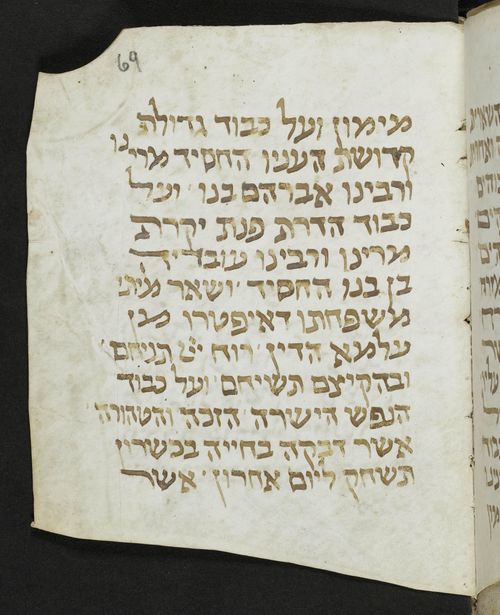 69
מימון ועל כבוד גדולת
קדושת העניו החסיד מרינו
ורבינו אברהם בנו ועל
כבוד הדרת פנת יקרת
מרינו ורבינו עובדיה
בן בנו החסיד ושאר מיתי
משפחתן דאיפטרו מן
עלמא הדין רוח יי תניחם
ובהקיצם תשיחם ועל כבוד
הנפש הישרה הזכה והטהורה
אשר דבקה בחייה בכשרון
תשחק ליום אחרון אשר